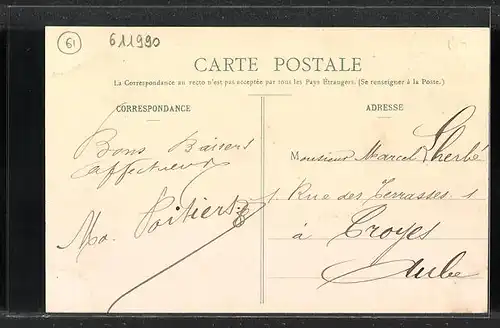 61
611990
CARTE POSTALE
La Correspondance au recto n'est pas acceptée par tous les Pays Étrangers. (Se renseigner à la Poste.)
CORRESPONDANCE
Bons Baisers
affectueux
Mo. Poitiers
ADRESSE
Monsieur Marcel Lherbé
1. Rue des Terrasses. 1
à Troyes
Aube